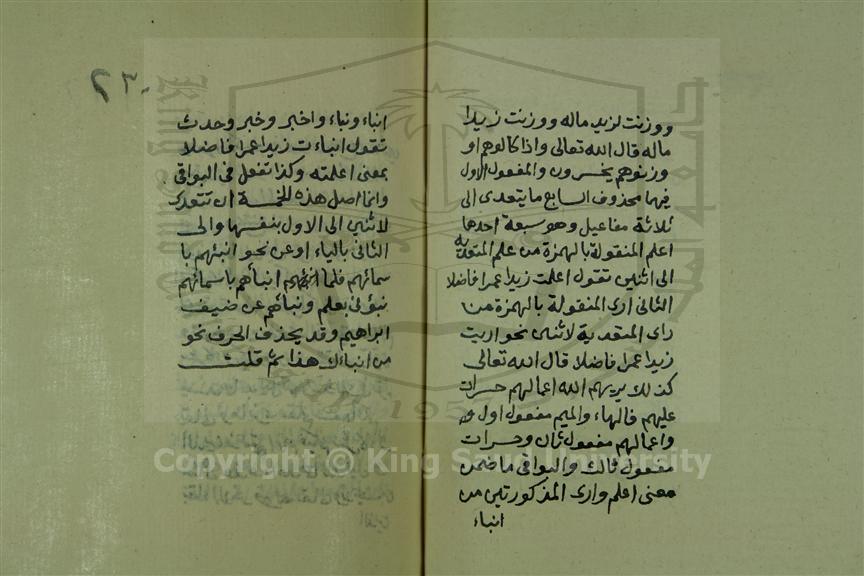 ووزنت لزيد ماله ووزنت زيدا
ماله قال الله تعالى واذا كالوهم او
وزنوهم يخسرون والمفعول الاول
فيها محذوف السابع ما يتعدى الى
ثلاثة مفاعيل وهو سبعة احدها
اعلم المنقولة بالهمزة من علم المتعدية
الى اثنين تقول اعلمت زيدا عمرا فاضلا
الثانى ارى المنقولة بالهمزة من
راى المتعدية لاثنين نحو اريت
زيدا عمرا فاضلا قال الله تعالى
كذلك يريهم الله اعمالهم حسرات
عليهم فالهاء والميم مفعول اول
واعمالهم مفعول ثان وحسرات
مفعول ثالث والبواقى ما ضمن
معنى اعلم وارى المذكورتين من
انباء
٢٣٠
انباء ونباء واخبر وخبر وحدث
تقول انباءت زيدا عمرا فاضلا
بمعنى اعلمته وكذا تفعل فى البواقى
وانما اصل هذه الخمسة ان تتعدى
لاثنين الى الاول بنفسها والى
الثانى بالباء او عن نحو انبئهم با
سمائهم فلما انبأهم باسمائهم
نبؤنى بعلم ونبأهم عن ضيف
ابراهيم وقد يحذف الحرف نحو
من انباءك هذا ثم قلت
Copyright © King Saud University
1957